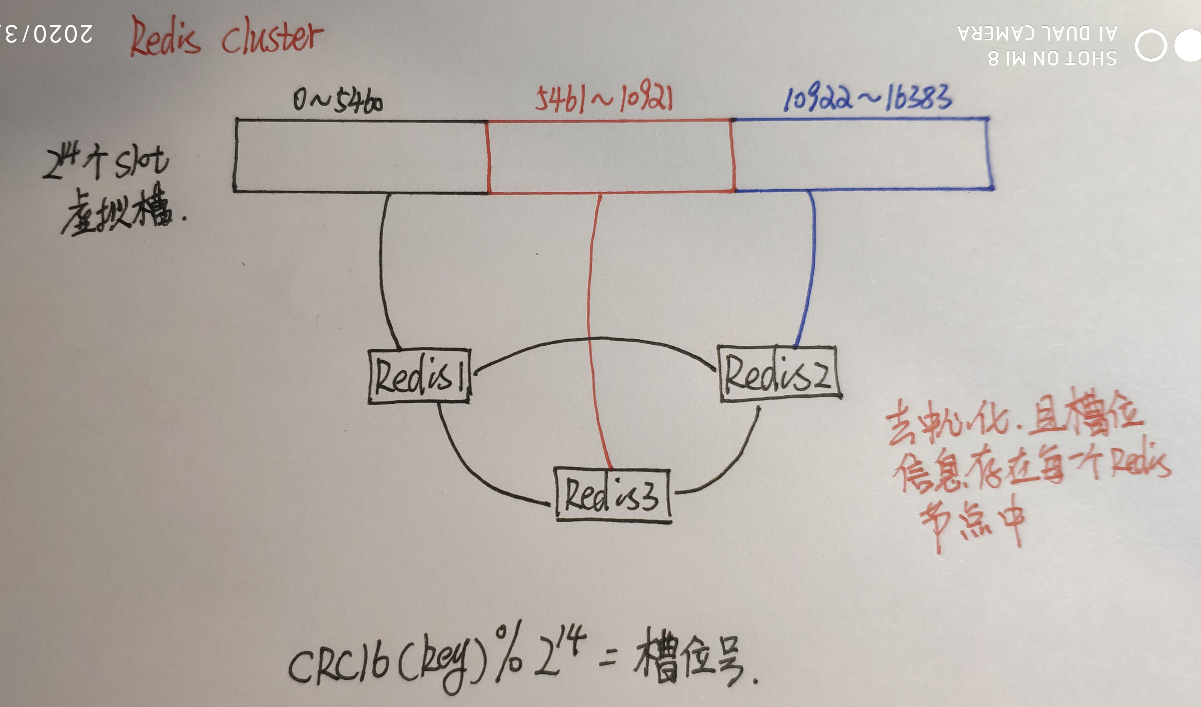 Redis Cluster
2020/3/
SHOT ON MI 8
AI DUAL CAMERA
0~5460
5461~10921
10922~16383
2^14个slot
虚拟槽.
Redis1
Redis2
Redis3
去中心化.且槽位
信息.存在每一个Redis
节点中
CRC16(key)%2^14=槽位号.